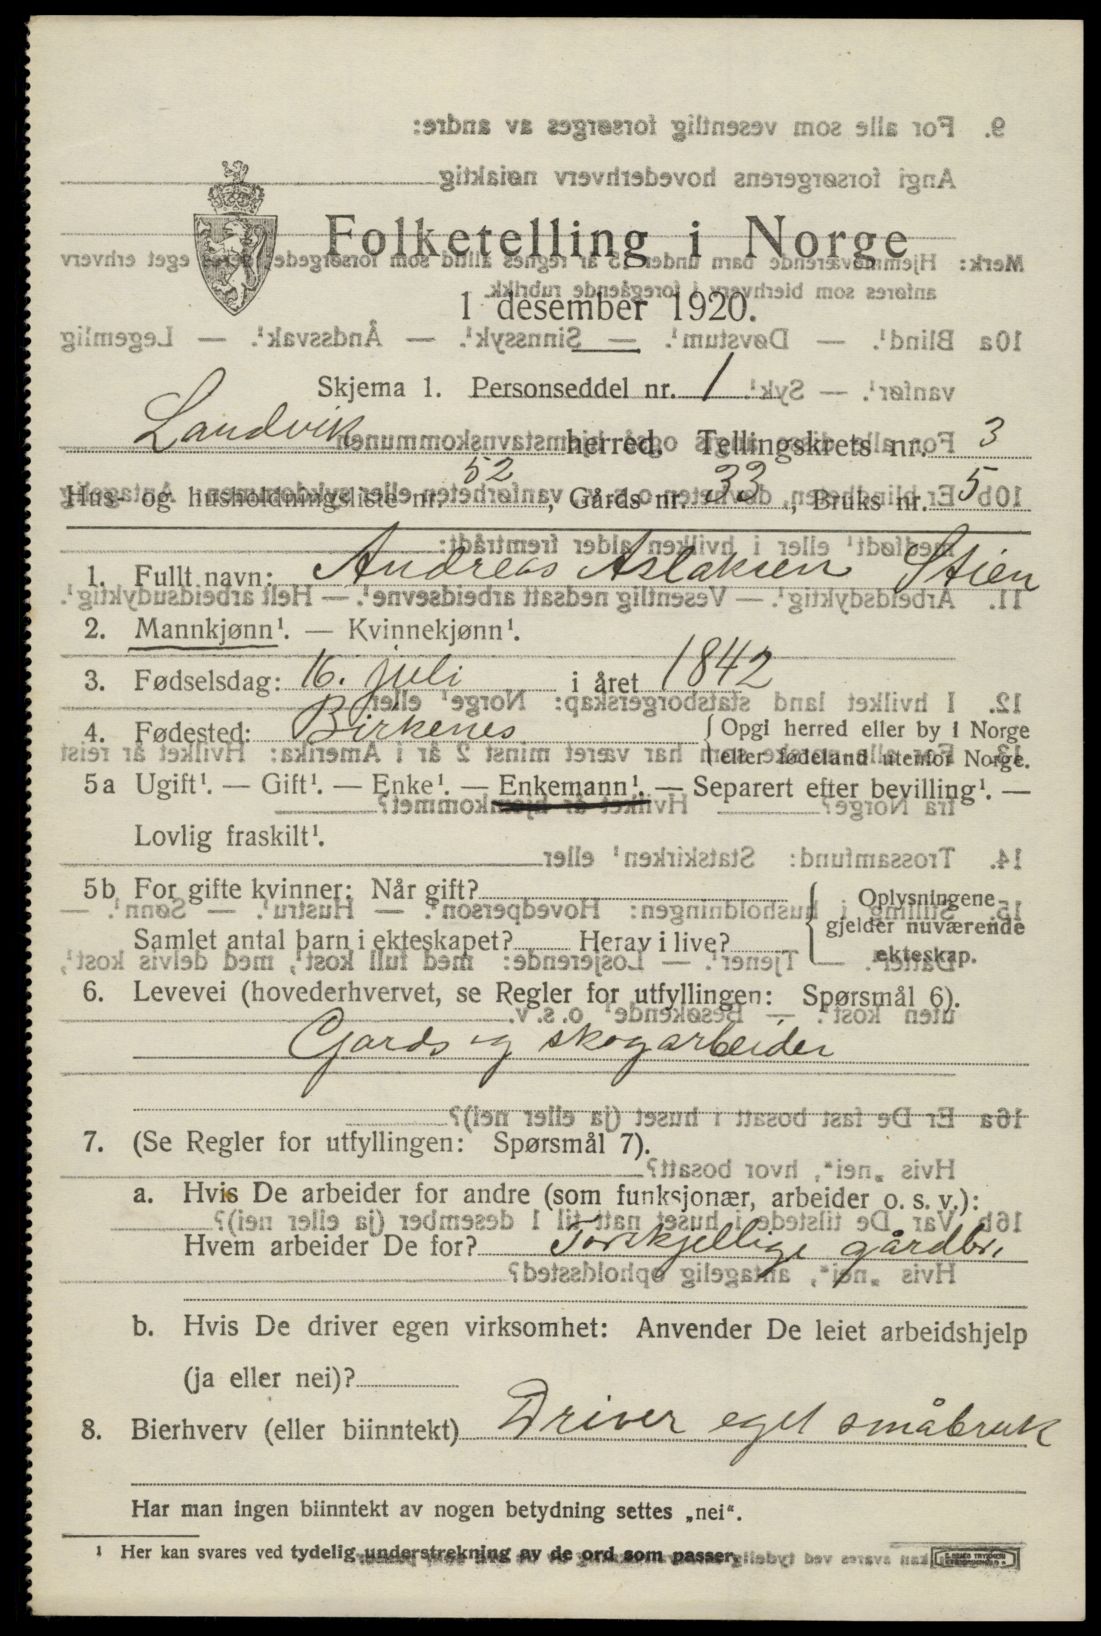 Folketelling i Norge
1 desember 1920.
Skjema 1. Personseddel nr. 1
Landvik herred. Tellingskrets nr. 3
Hus- og husholdningsliste nr. 52, Gårds nr. 33, Bruks nr. 5
1. Fullt navn: Andreas Aslaksen Stien
2. Mannkjønn¹. — Kvinnekjønn¹.
3. Fødselsdag: 16. juli i året 1842
4. Fødested: Birkenes { Opgi herred eller by i Norge
eller fødeland utenfor Norge.
5a Ugift¹. — Gift¹. — Enke¹. — Enkemann¹. — Separert efter bevilling¹. —
Lovlig fraskilt¹.
5b For gifte kvinner: Når gift?
Samlet antal barn i ekteskapet? Herav i live?
{ Oplysningene
gjelder nuværende
ekteskap.
6. Levevei (hovederhvervet, se Regler for utfyllingen: Spørsmål 6).
Gards og skogarbeider
7. (Se Regler for utfyllingen: Spørsmål 7).
a. Hvis De arbeider for andre (som funksjonær, arbeider o. s. v.):
Hvem arbeider De for? Forskjellige gårdbr.
b. Hvis De driver egen virksomhet: Anvender De leiet arbeidshjelp
(ja eller nei)?
8. Bierhverv (eller biinntekt) Driver eget småbruk
Har man ingen biinntekt av nogen betydning settes „nei“.
¹ Her kan svares ved tydelig understrekning av de ord som passer.